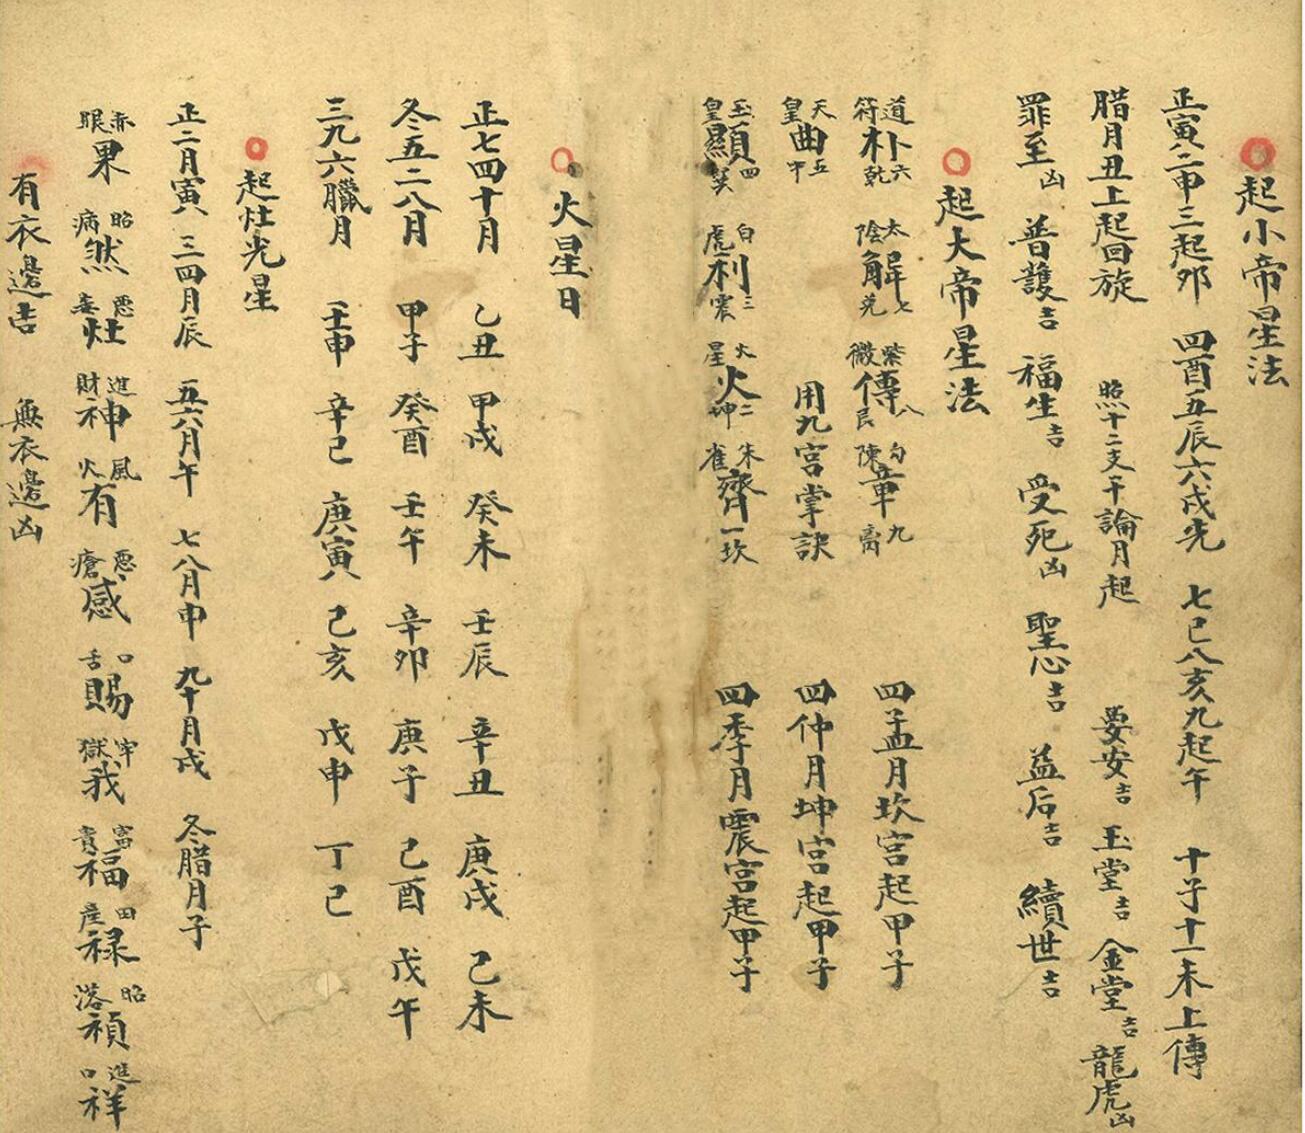 起小帝星法
正寅二申三起卯 四酉五辰六戌先 七巳八亥九起午 十子十一未上傳
腊月丑上起回旋 照十二支干論月起 要安吉 玉堂吉 金堂吉 龍虎凶
罪至凶 普護吉 福生吉 受死凶 聖心吉 益后吉 續世吉
起大帝星法
道符朴六乾 太陰解七兌 紫微傳八艮 勾陳章九离 四孟月坎宮起甲子
天皇曲五中 用九宮掌訣 四仲月坤宮起甲子
玉皇顯四巽 白虎利三震 火星火二坤 朱雀齊一坎 四季月震宮起甲子
火星日
正七四十月 乙丑 甲戌 癸未 壬辰 辛丑 庚戌 己未
冬五二八月 甲子 癸酉 壬午 辛卯 庚子 己酉 戊午
三九六臘月 壬申 辛巳 庚寅 己亥 戊申 丁巳
起灶光星
正二月寅 三四月辰 五六月午 七八月申 九十月戌 冬腊月子
赤眼果 昭病然 惡毒灶 進財神 風火有 惡瘡感 口舌賜 牢獄我 富貴福 田産禄 昭落禎 進口祥
有衣邊吉 無衣邊凶